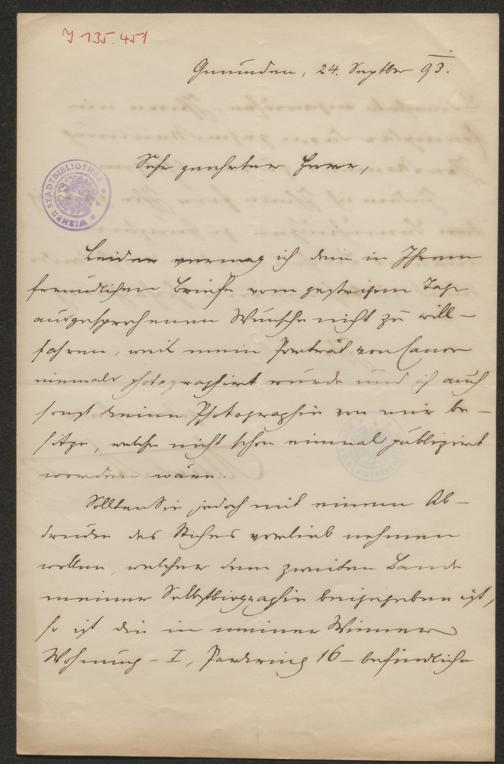 J 135.451
Gmunden, 24. Septber 93.
Sehr geehrter Herr,
WIENER STADTBIBLIOTHEK
Leider vermag ich dem in Ihrem
freundlichen Briefe vom gestrigen Tage
ausgesprochenen Wunsche nicht zu will-
fahren, weil mein Porträt von Canon
niemals photographirt wurde und ich auch
sonst keine Photographie von mir be-
sitze, welche nicht schon einmal publizirt
worden wäre.
Sollten Sie jedoch mit einem Ab-
drucke des Stiches vorlieb nehmen
wollen, welcher dem zweiten Bande
meiner Selbstbiographie beigegeben ist,
so ist die in meiner Wiener
Wohnung – I, Parkring 16 – befindliche